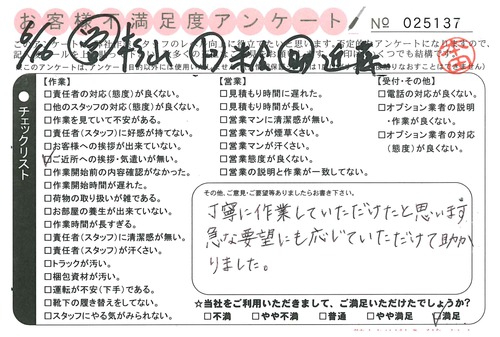 お客様不満足度アンケート № 025137
チェックリスト
【作業】
□責任者の対応(態度)が良くない。
□他のスタッフの対応(態度)が良くない。
□作業を見ていて不安がある。
□責任者(スタッフ)に好感が持てない。
□お客様への挨拶が出来ていない。
□ご近所への挨拶・気遣いが無い。
□作業開始前の内容確認がなかった。
□作業開始時間が遅れた。
□荷物の取り扱いが雑である。
□お部屋の養生が出来ていない。
□作業時間が長すぎる。
□責任者(スタッフ)に清潔感が無い。
□責任者(スタッフ)が汗くさい。
□トラックが汚い。
□梱包資材が汚い。
□運転が不安(下手)である。
□靴下の履き替えをしてない。
□スタッフにやる気がみられない。
【営業】
□見積もり時間に遅れた。
□見積もり時間が長い。
□営業マンに清潔感が無い。
□営業マンが煙草くさい。
□営業マンが汗くさい。
□営業態度が良くない。
□営業の説明と作業が一致してない。
【受付・その他】
□電話の対応が良くない。
□オプション業者の説明
・作業が良くない。
□オプション業者の対応
(態度)が良くない。
その他、ご意見・ご要望等ありましたらお書き下さい。
丁寧に作業していただけたと思います
急な要望にも応じていただけて助か
りました。
☆当社をご利用いただきまして、ご満足いただけたでしょうか?
□不満 □やや不満 □普通 □やや満足 □満足